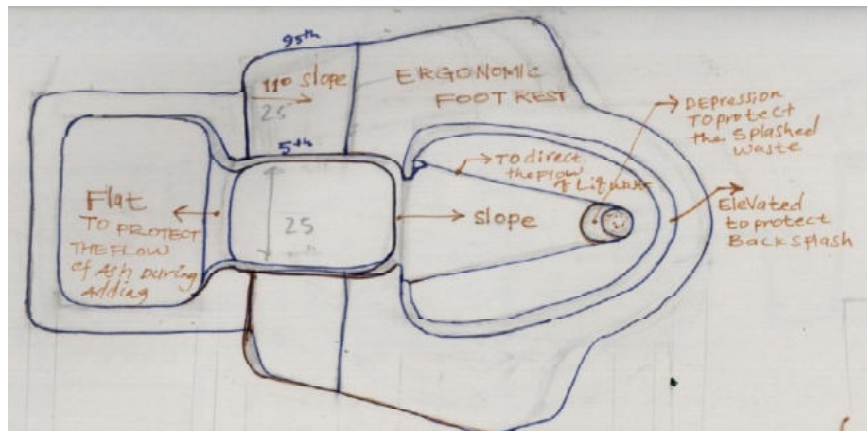 95th
110 slope
25
5th
ERGONOMIC
FOOT REST
DEPRESSION
TO protect
the SPlashed
WASTE
TO direct
the Flow
of Liquid
Flat
TO PROTECT
THE FLOW
of Ash During
Adding
25
slope
Elevated
to protect
Back splash